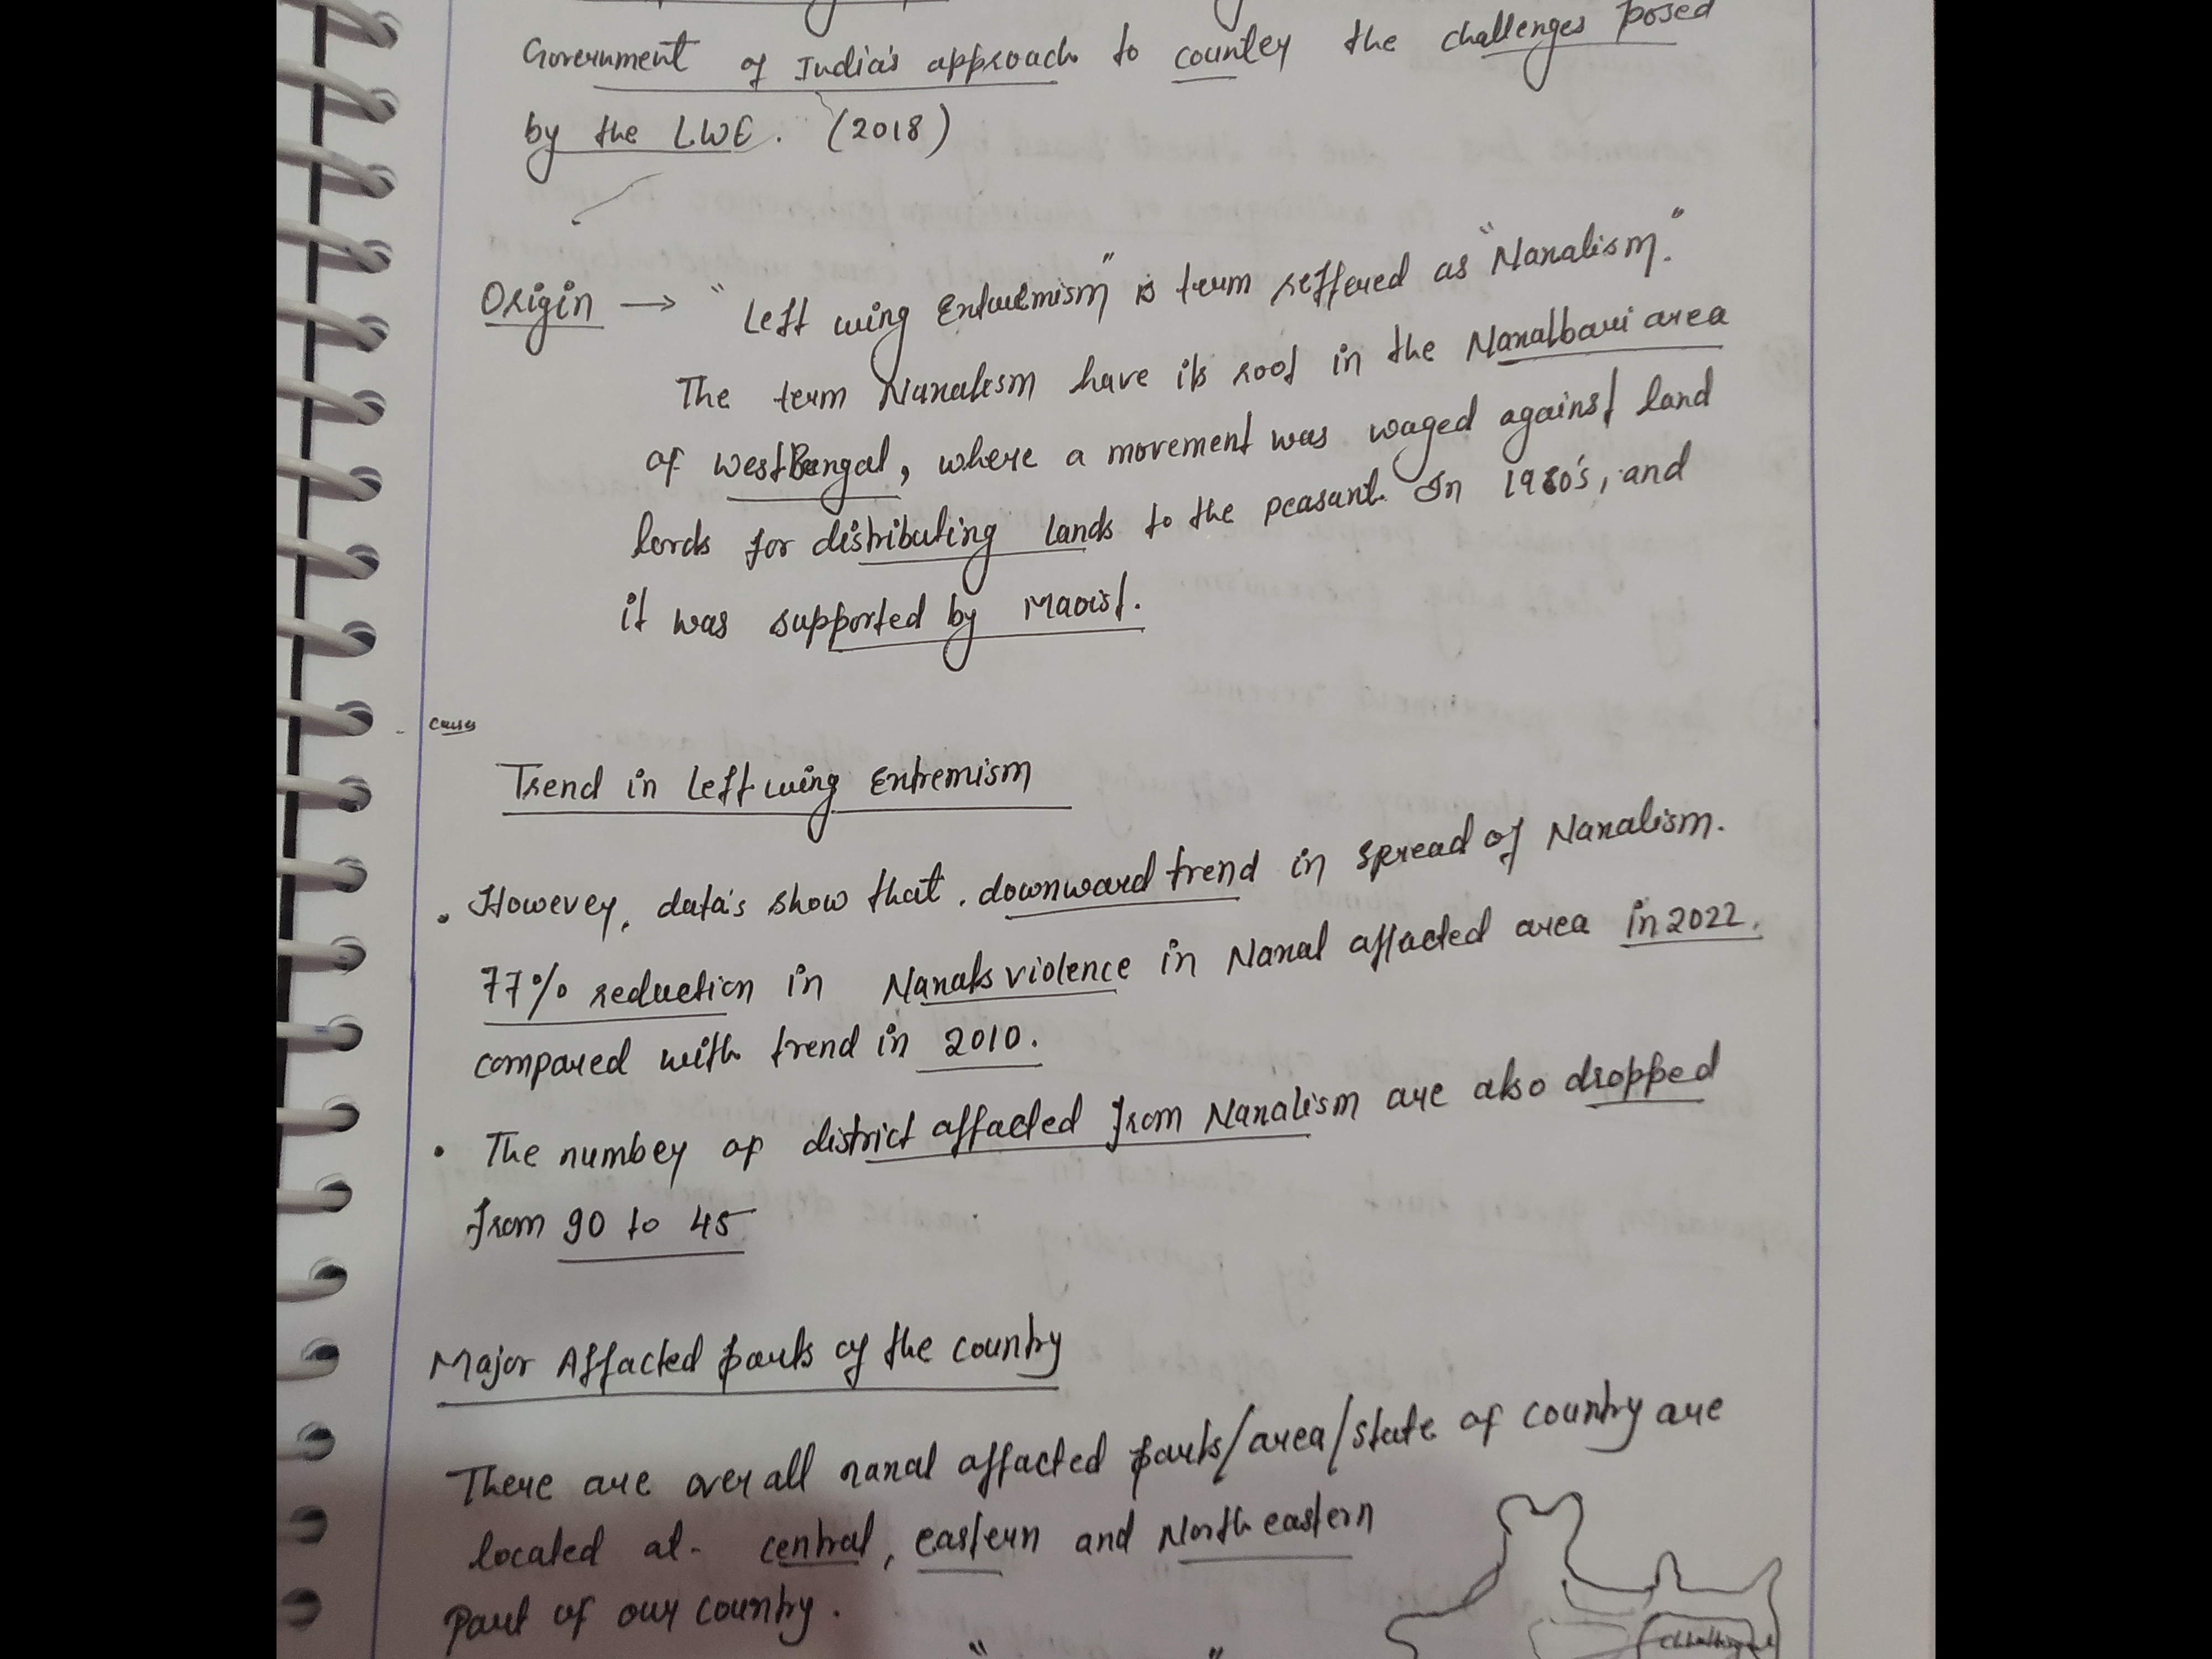 Government of India's approach to counter the challenges posed
by the LWE. (2018)
Origin → "Left wing Extremism" is term reffered as "Naxalism."
The term Naxalism have its root in the Naxalbari area
of West Bengal, where a movement was waged against land
lords for distributing lands to the peasant. In 1980's, and
it was supported by Maoist.
Trend in Left wing Extremism
• However, data's show that. downward trend in spread of Naxalism.
77% reduction in Naxals violence in Naxal affacted area in 2022.
compared with trend in 2010.
• The number of district affacted from Naxalism are also dropped
from 90 to 45
Major Affacted parts of the country
There are over all naxal affacted parts/area/state of country are
located at- central, eastern and North eastern
part of our country.